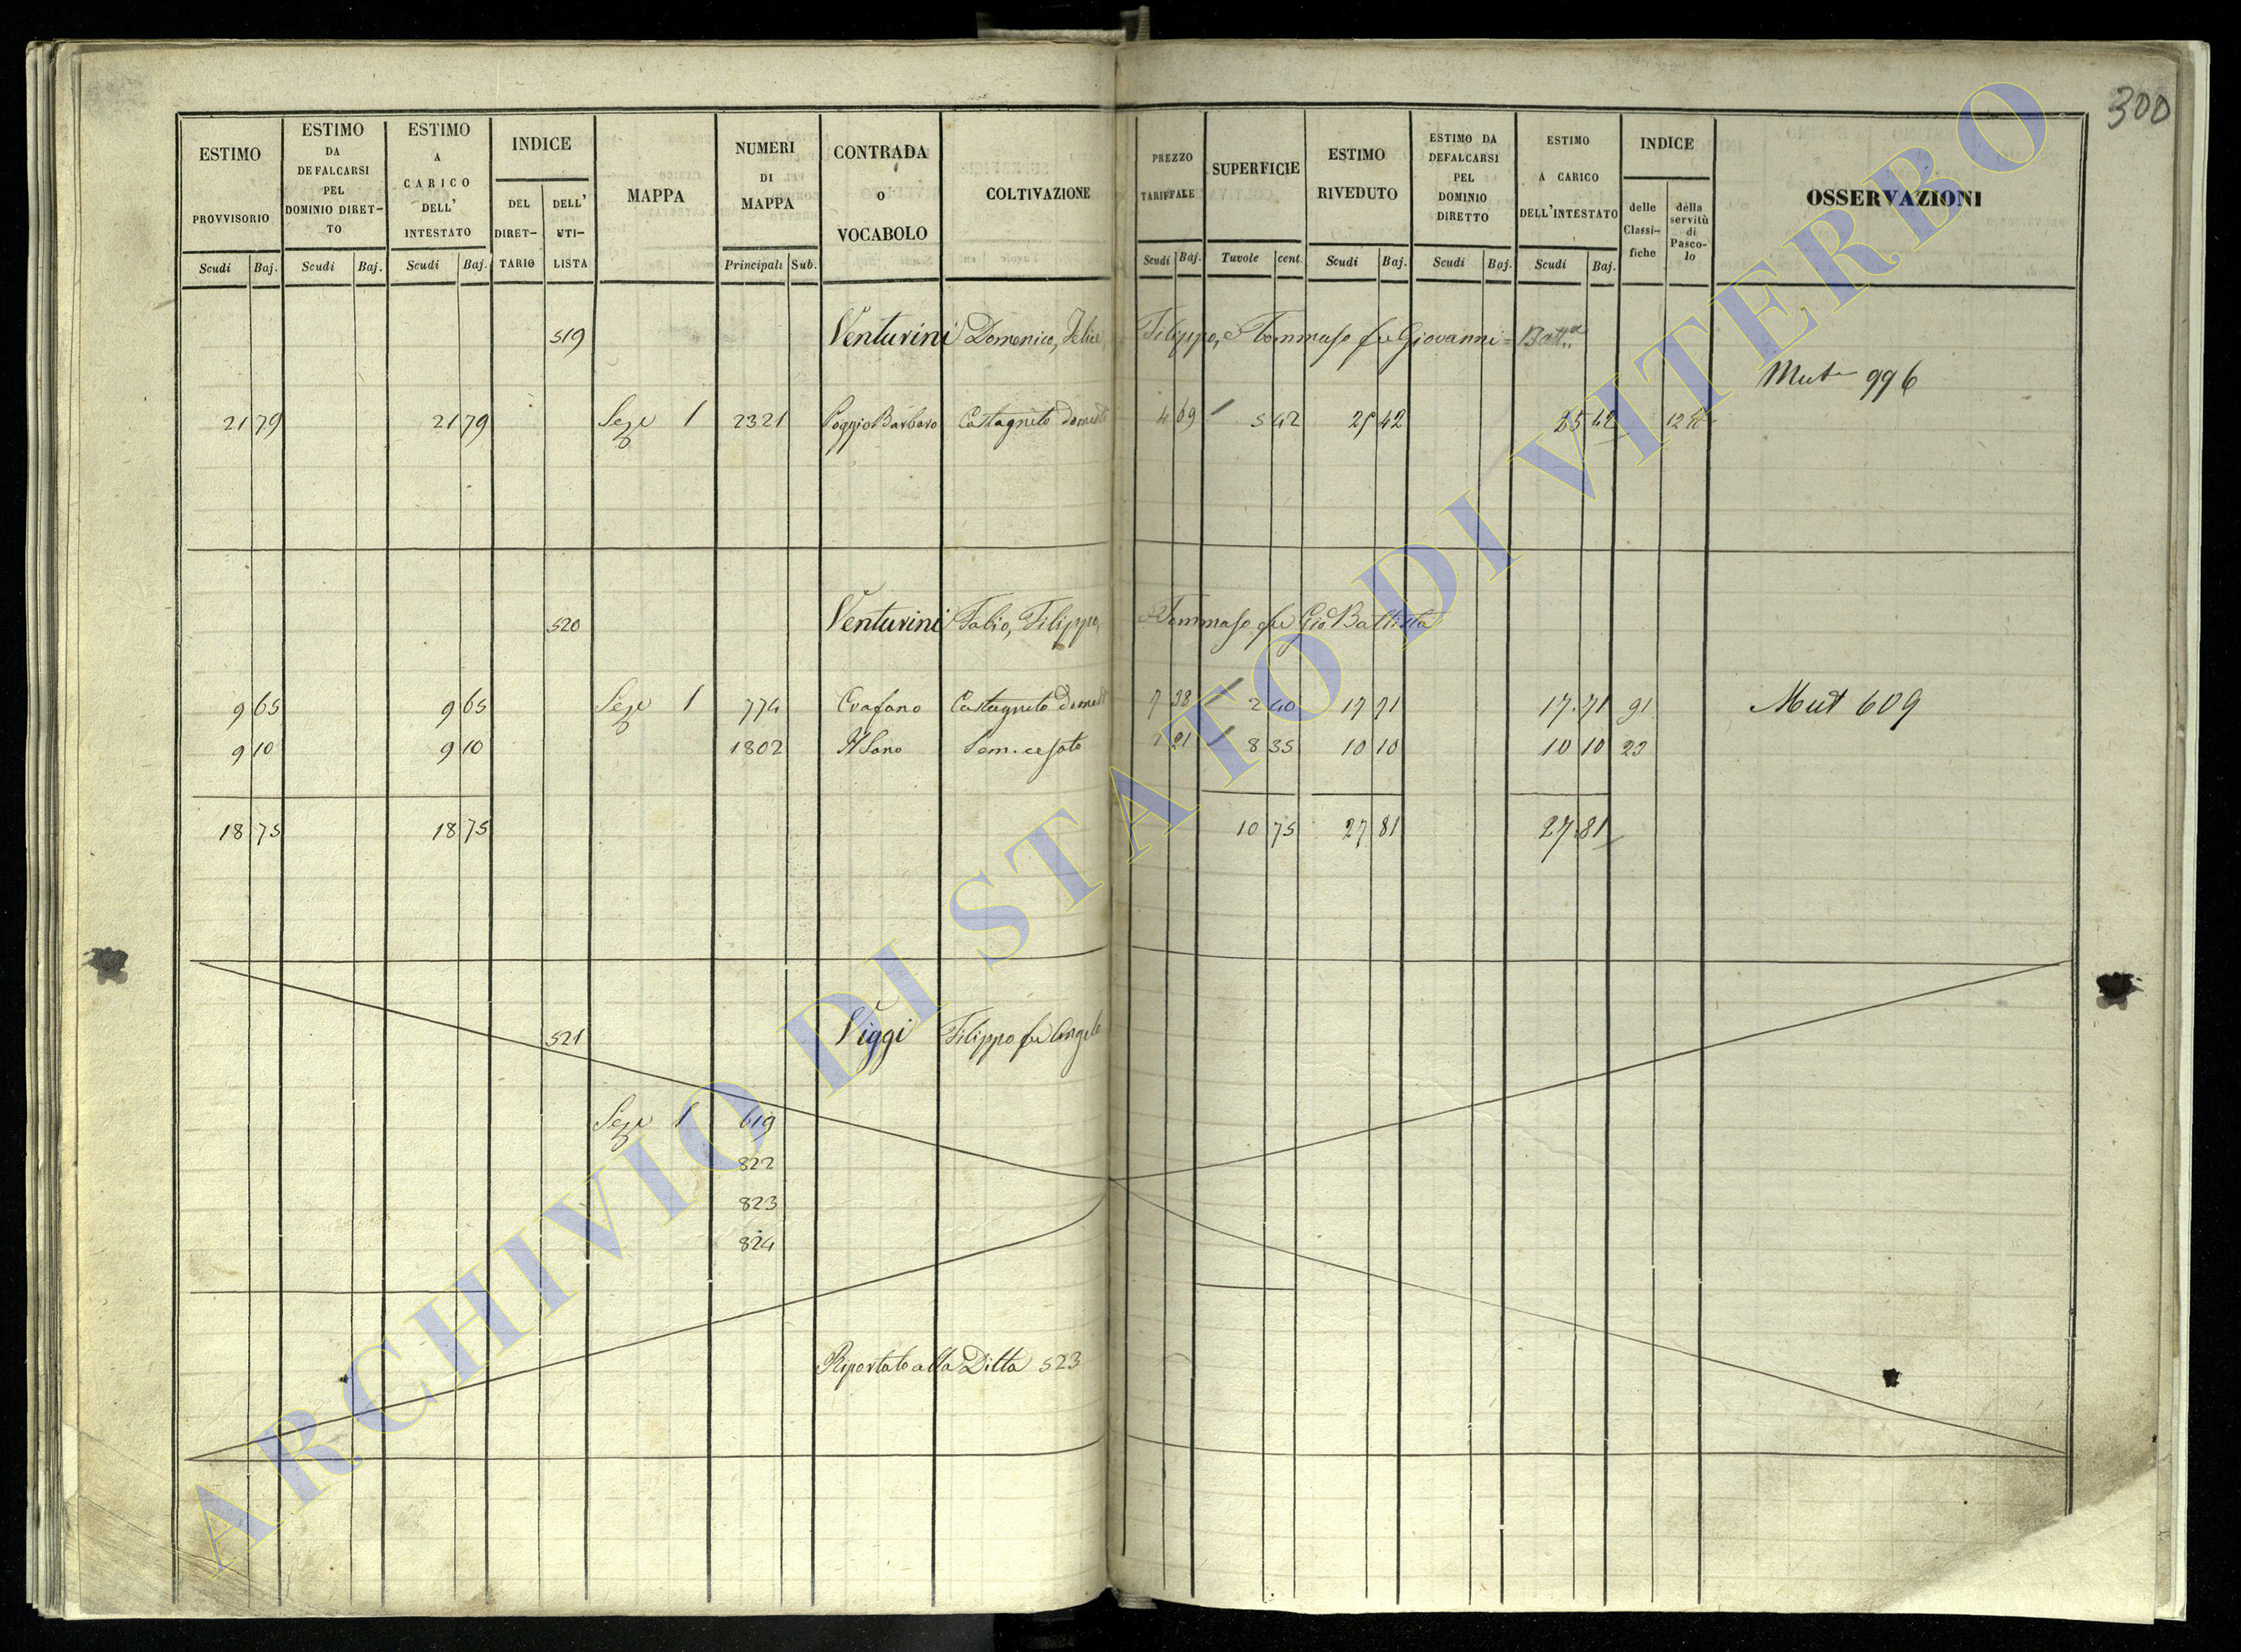 300
ESTIMO PROVVISORIO Scudi Baj.
ESTIMO DA DEFALCARSI PEL DOMINIO DIRET-TO Scudi Baj.
ESTIMO A CARICO DELL' INTESTATO Scudi Baj.
INDICE DEL DIRET-TARIO DELL' UTI-LISTA
MAPPA
NUMERI DI MAPPA Principali Sub.
CONTRADA O VOCABOLO
COLTIVAZIONE
PREZZO TARIFFALE Scudi Baj.
SUPERFICIE Tavole cent.
ESTIMO RIVEDUTO Scudi Baj.
ESTIMO DA DEFALCARSI PEL DOMINIO DIRETTO Scudi Baj.
ESTIMO A CARICO DELL'INTESTATO Scudi Baj.
INDICE delle Classi-fiche della servitù di Pasco-lo
OSSERVAZIONI
519 Venturini Domenico, Felice, Filippo, e Tommaso fu Giovanni = Batta
Mut 996
21 79 21 79 Seze 1 2321 Poggio Barbaro Castagneto Domest 4 69 5 42 25 42 25 42 12
520 Venturini Fabio, Filippo, e Tommaso fu Gio Battista
9 65 9 65 Seze 1 774 Crafano Castagneto Domest 7 38 2 40 17 71 17.71 91 Mut 609
9 10 9 10 1802 Sem. cesato 1 21 8 35 10 10 10 10 23
18 75 18 75 10 75 27 81 27.81
521 Viggi Filippo fu Angelo
Seze 1 619
822
823
824
Riportato alla Ditta 523
ARCHIVIO DI STATO DI VITERBO